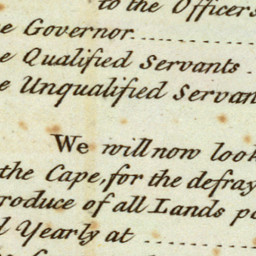 to the Officers
e Governor
e Qualified Servants
e Unqualified Servan
We will now look
the Cape, for the defray
roduce of all Lands p
l Yearly at